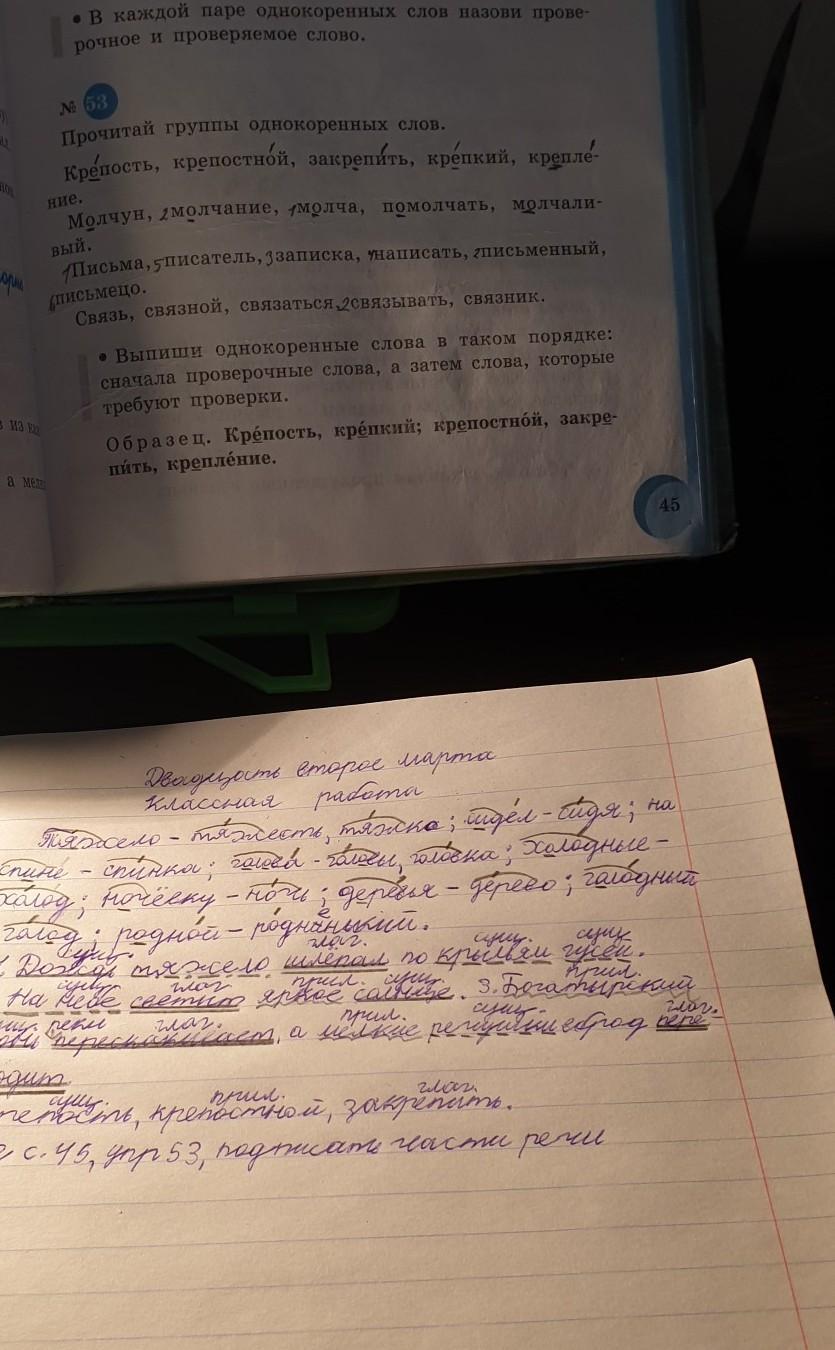 • В каждой паре однокоренных слов назови прове-
рочное и проверяемое слово.
№ 53
Прочитай группы однокоренных слов.
Кре́пость, крепостно́й, закрепи́ть, кре́пкий, крепле́-
ние.
Молчун, 2молчание, 1молча, помолчать, молчали-
вый.
1Письма, 5писатель, 3записка, 4написать, 2письменный,
6письмецо.
Связь, связной, связаться, 2связывать, связник.
• Выпиши однокоренные слова в таком порядке:
сначала проверочные слова, а затем слова, которые
требуют проверки.
Образец. Кре́пость, кре́пкий; крепостно́й, закре-
пи́ть, крепле́ние.
45
Двадцать второе марта
Классная работа
Тяжело – тя́жесть, тя́жко; сиде́л – си́дя; на
спине́ – спи́нка; голова́ – го́ловы, голо́вка; холо́дные –
хо́лод; ночёвку – но́чь; дере́вья – де́рево; голо́дный
го́лод; родно́й – ро́дненький.
сущ. глаг. сущ. сущ.
Дождь тяжело шлёпал по крыльям гусей.
сущ. глаг. прил. сущ. прил.
На небе светит яркое солнце. 3. Богатырский
реки глаг. прил. сущ. глаг.
перескакивает, а мелкие речушки вброд пере-
одит.
сущ. прил. глаг.
репость, крепостной, закрепить.
с. 45, упр 53, подписать части речи